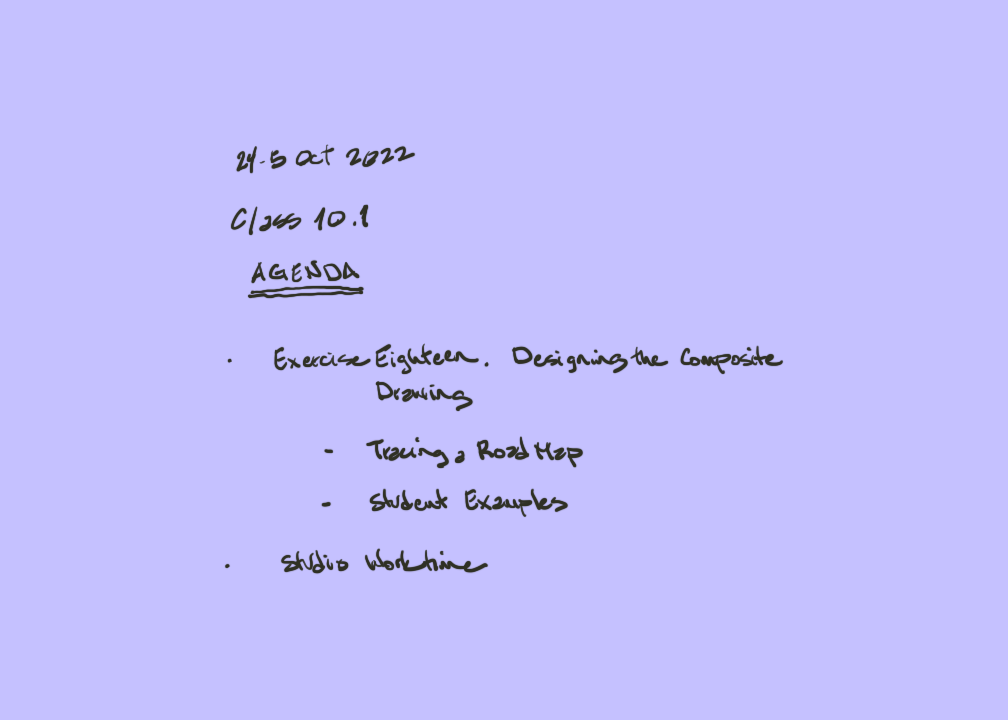 24-5 Oct 2022
Class 10.1
AGENDA
· Exercise Eighteen. Designing the Composite
Drawing
- Tracing a Road Map
- Student Examples
· Studio Worktime